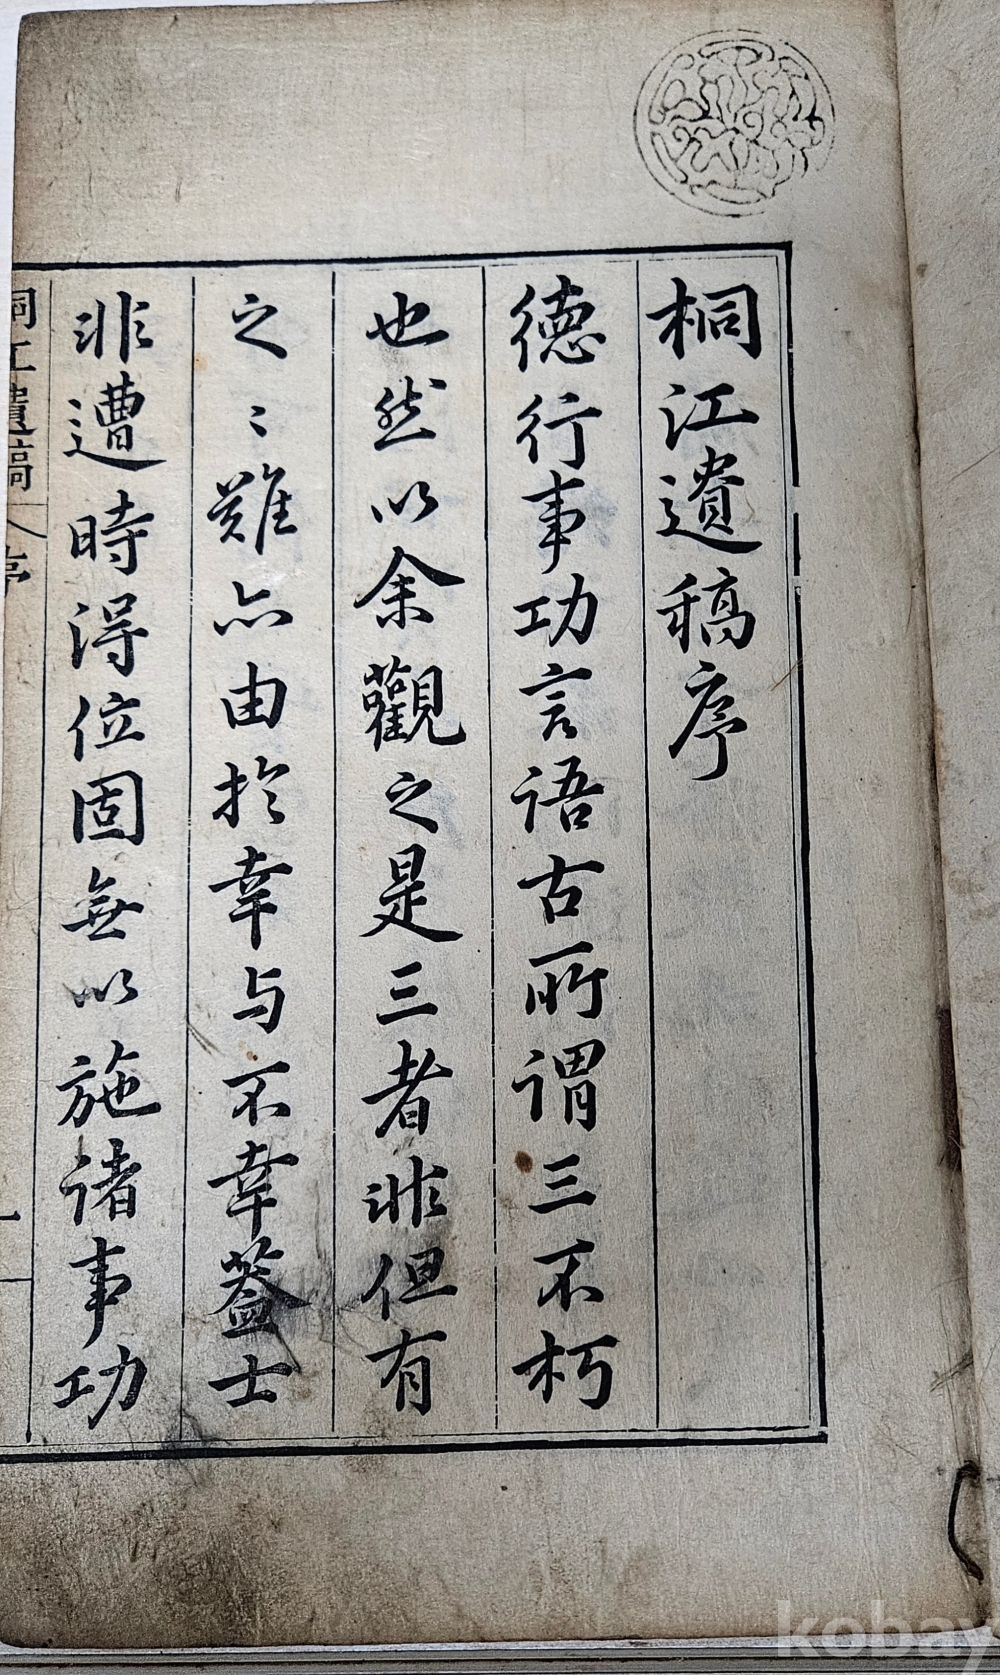 桐江遺稿序
德行事功言語古所謂三不朽
也然以余觀之是三者非但有
之〻難亦由於幸与不幸盖士
非遭時得位固無以施諸事功
桐江遺稿 序
kobay